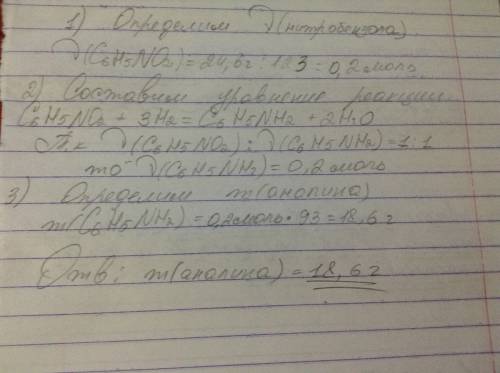 1) Определим ν(нитробензола)
ν(C6H5NO2) = 24,6г : 123 = 0,2 моль.
2) Составим уравнение реакции
C6H5NO2 + 3H2 = C6H5NH2 + 2H2O
Т.к ν(C6H5NO2) : ν(C6H5NH2) = 1 : 1
то ν(C6H5NH2) = 0,2 моль
3) Определим m(анолина)
m(C6H5NH2) = 0,2моль • 93 = 18,6 г
Отв: m(анолина) = 18,6 г